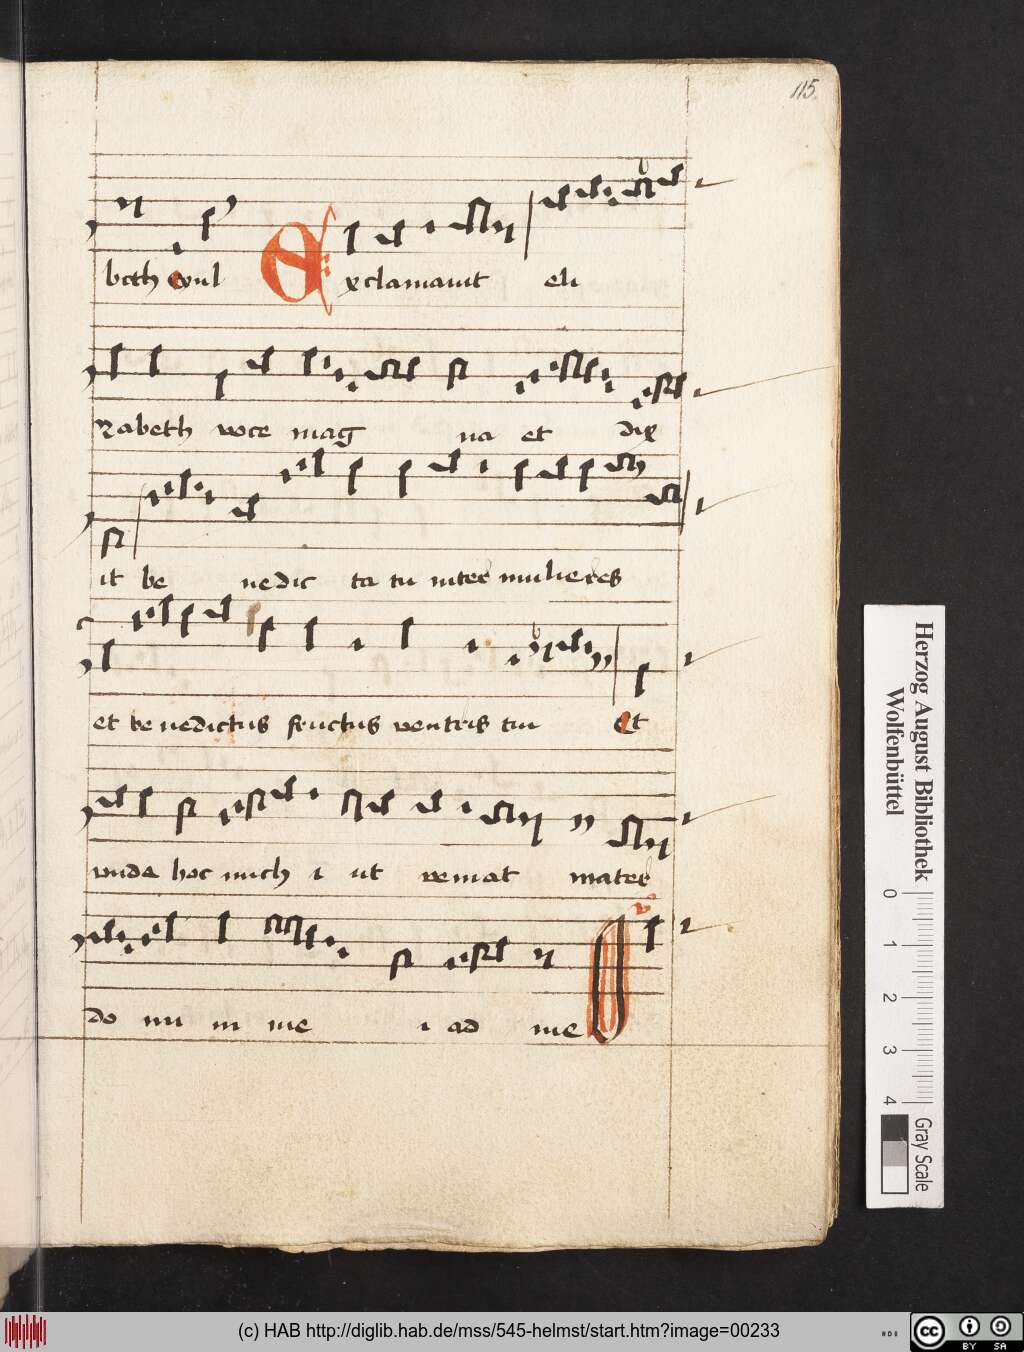 115.
beth Exul Exclamauit eli
zabeth voce mag na et dix
it be nedic ta tu inter mulieres
et benedictus fructus ventris tui Et
vnde hoc mich i ut veniat mater
do mi ni me i ad me
Herzog August Bibliothek
Wolfenbüttel
0 1 2 3 4
Gray Scale
(c) HAB http://diglib.hab.de/mss/545-helmst/start.htm?image=00233
cc BY SA